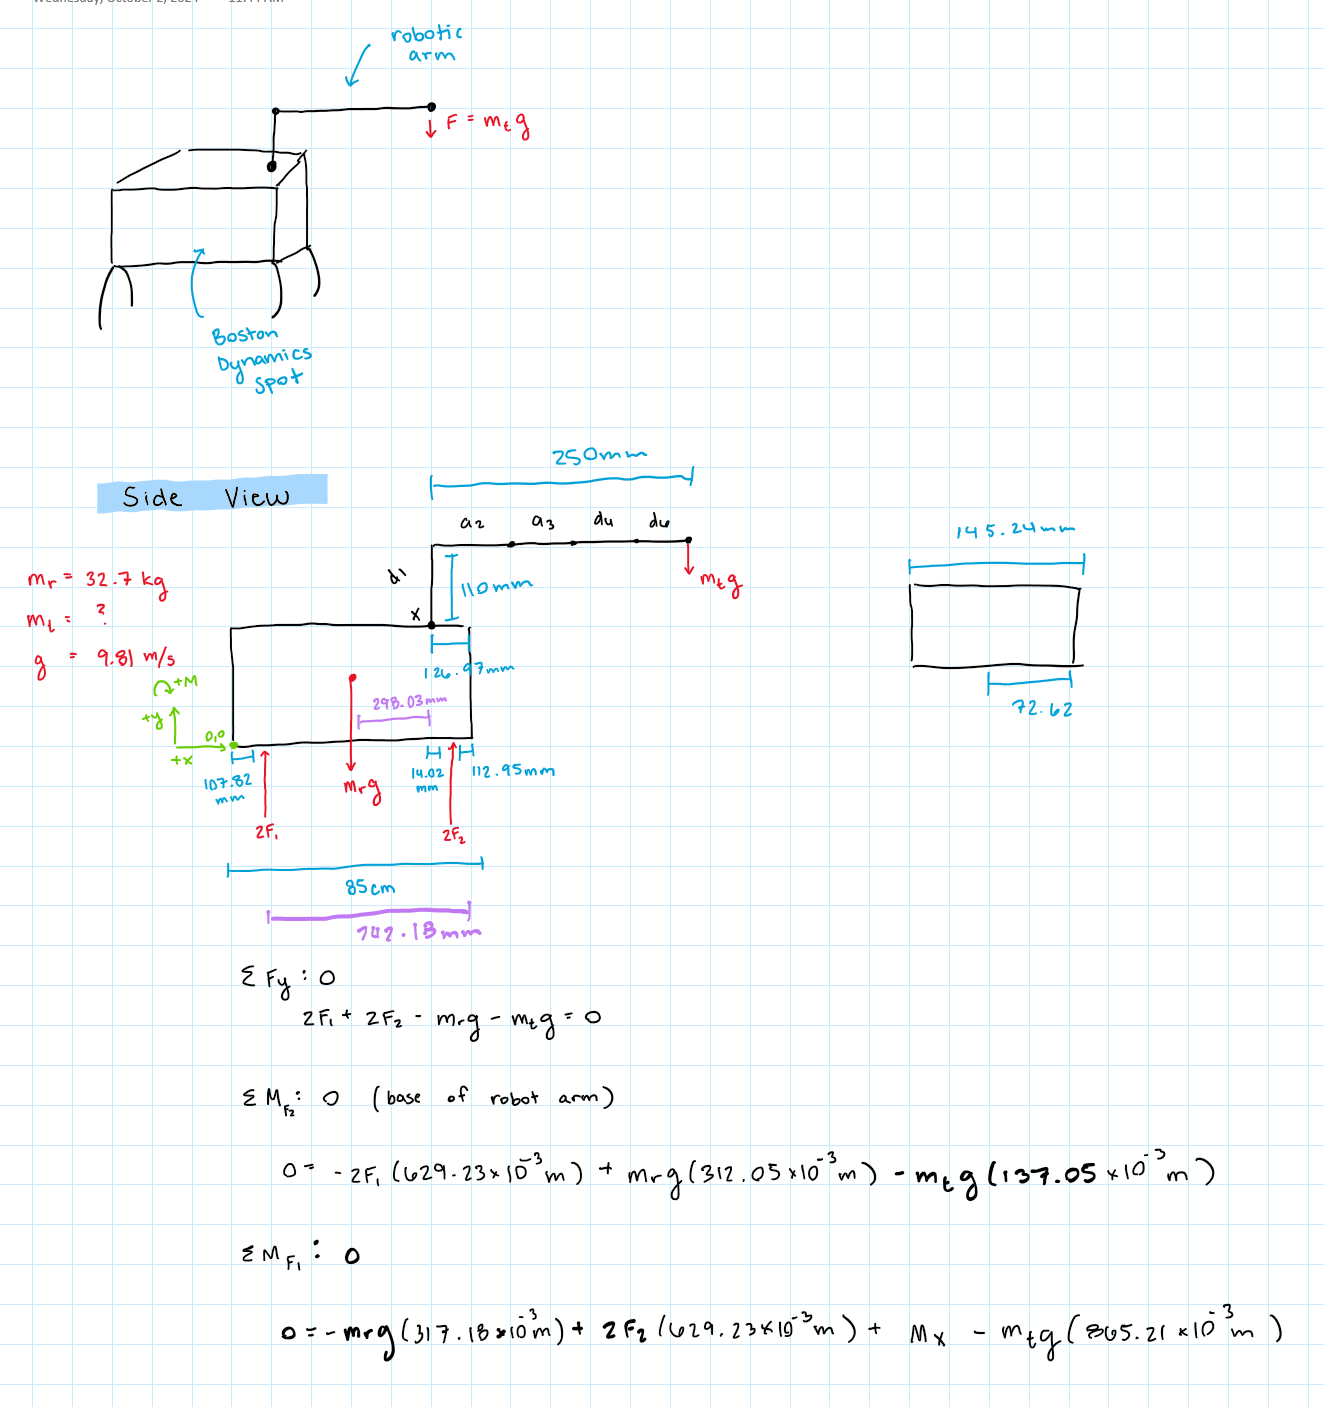 robotic
arm
F = mₜg
Boston
Dynamics
Spot
Side View
250mm
a₂ a₃ d₄ d₆
d₁
110mm
mₜg
x
mᵣ = 32.7 kg
mₜ = ?
g = 9.81 m/s
+M
+y
0,0
+x
126.97mm
298.03mm
107.82
mm
mᵣg
14.02
mm
112.95mm
2F₁
2F₂
85cm
742.18mm
145.24mm
72.62
Σ Fy : 0
2F₁ + 2F₂ - mᵣg - mₜg = 0
Σ M_F₂ : 0 (base of robot arm)
0 = - 2F₁ (629.23×10⁻³m) + mᵣg (312.05×10⁻³m) - mₜg (137.05×10⁻³m)
Σ M_F₁ : 0
0 = - mᵣg (317.18×10⁻³m) + 2F₂ (629.23×10⁻³m) + Mx - mₜg (865.21×10⁻³m)